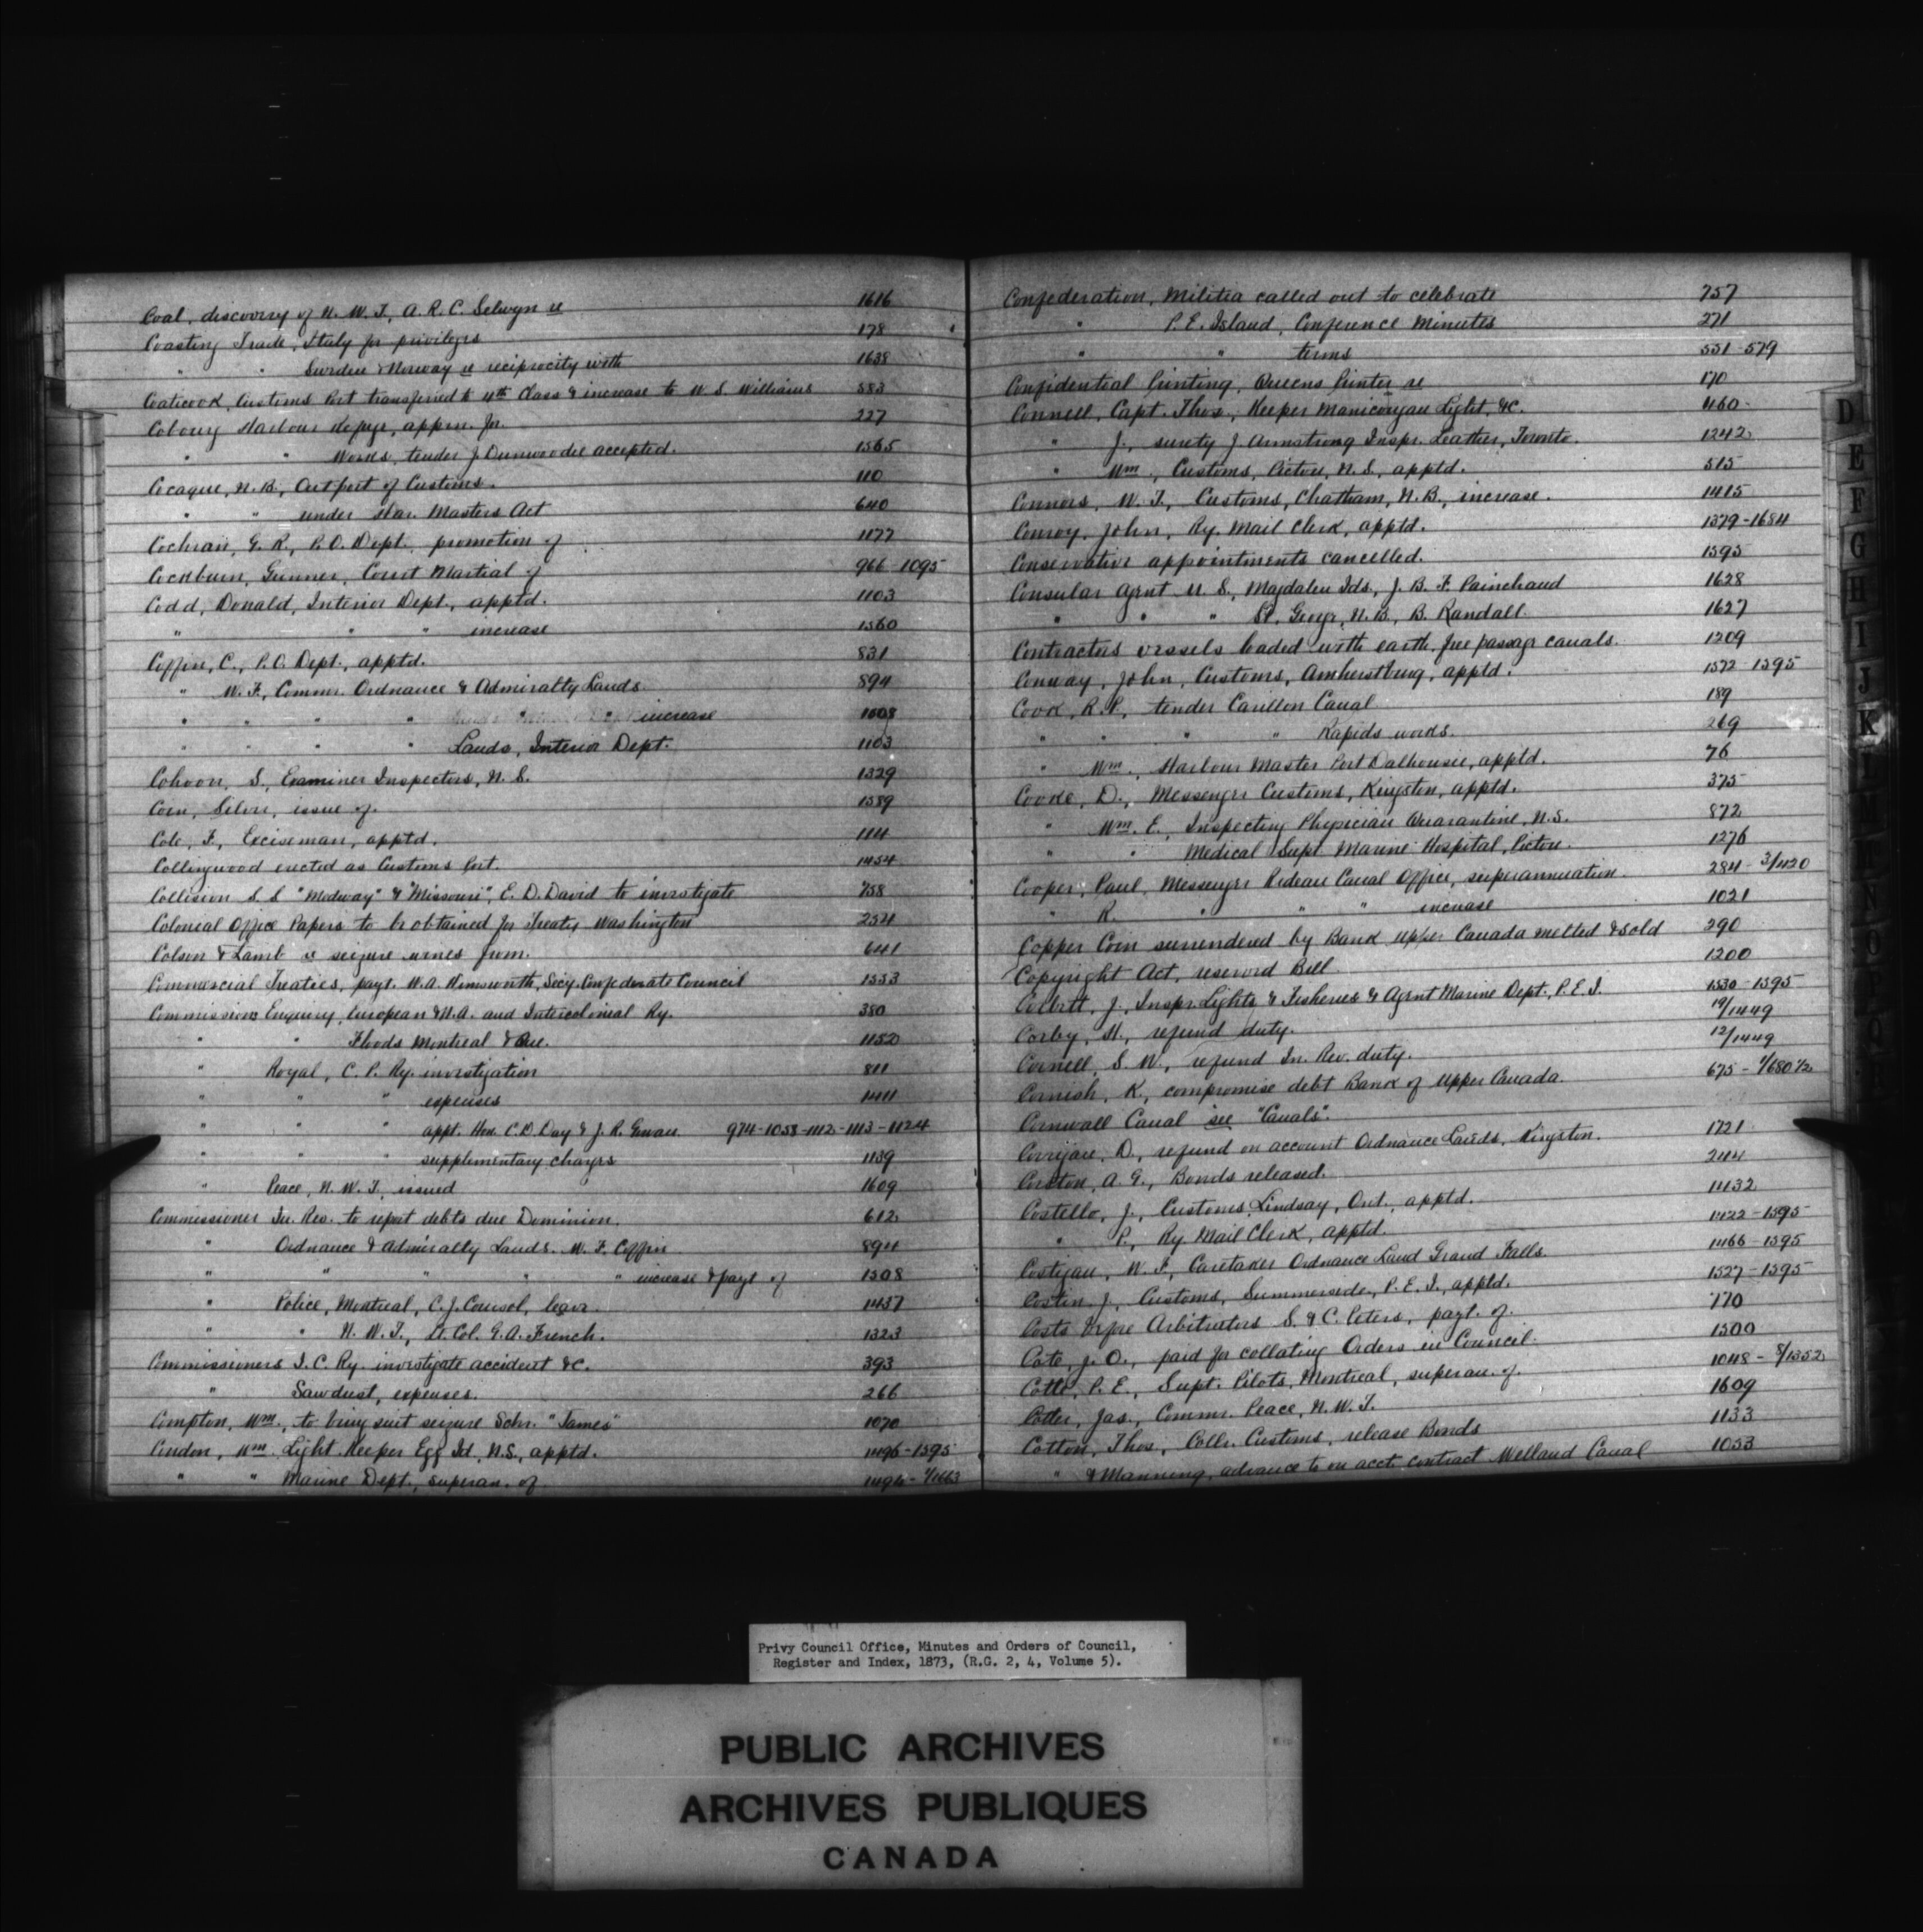 Coal, discovery of N. W. T., A. R. C. Selwyn re 1616
Coasting Trade, Italy for privileges 178
" " Sweden & Norway re reciprocity with 1638
Coaticook, Customs Port transferred to 4th Class & increase to W. S. Williams 383
Cobourg Harbour dredge, appn. for 227
" " Works, tender J. Dunwoodie accepted. 1565
Cocagne, N. B., Outport of Customs. 110
" " under Har. Masters Act 640
Cochran, G. R., P. O. Dept., promotion of 1177
Cockburn, Gunner, Court Martial of 966-1095
Codd, Donald, Interior Dept., apptd. 1103
" " " increase 1560
Coffin, C., P. O. Dept., apptd. 831
" W. F., Commr. Ordnance & Admiralty Lands 894
" " " " " " increase 1508
" " " " Lands, Interior Dept. 1103
Cohoon, S., Examiner Inspectors, N. S. 1329
Coin, Silver, issue of. 1589
Cole, F., Exciseman, apptd. 1114
Collingwood erected as Customs Port. 1454
Collision S. S. "Medway" & "Missouri", E. D. David to investigate 758
Colonial Office Papers to be obtained for Treaty Washington 254
Colson & Lamb re seizure wines from. 641
Commercial Treaties, payt. W. A. Himsworth, Secy. Confederate Council 1533
Commissions Enquiry, European & N. A. and Intercolonial Ry. 380
" " Floods Montreal & Que. 1152
" Royal, C. P. Ry. investigation 811
" " " expenses 1411
" " " appt. Hon. C. D. Day & J. R. Gowan 974-1058-1112-1113-1124
" " " supplimentary charges 1139
" Peace, N. W. T., issued 1609
Commissioner In. Rev. to report debts due Dominion. 612
" Ordnance & Admiralty Lands. W. F. Coffin 894
" " " " " increase & payt of 1508
" Police, Montreal, C. J. Coursol, leave. 1437
" " N. W. T., Lt. Col. G. A. French. 1323
Commissioners I. C. Ry. investigate accident &c. 393
" Sawdust, expenses. 266
Compton, Wm., to bring suit seizure Schr. "James" 1070
Condon, Wm. Light Keeper Egg Id., N. S., apptd. 1496-1595
" " Marine Dept., superan. of 1496-1/1663
Confederation, Militia called out to celebrate 757
" P. E. Island, Conference Minutes 271
" " terms 551-579
Confidential Printing, Queens Printer re 170
Connell, Capt. Thos., Keeper Manicougan Light, &c. 460
" J., surety J Armstrong Inspr. Leather, Toronto. 1242
" Wm., Customs, Pictou, N. S., apptd. 515
Connors, W. J., Customs, Chatham, N. B., increase. 1415
Conroy, John, Ry. Mail Clerk, apptd. 1379-1684
Conservative appointments cancelled. 1595
Consular Agent U. S., Magdalen Ids., J. B. F. Painchaud 1628
" " " St. George, N. B., B. Randall 1627
Contractors vessels loaded with earth, free passage canals. 1209
Conway, John, Customs, Amherstburg, apptd. 1572-1595
Cook, R. P., tender Carillon Canal 189
" " " " Rapids works. 269
" Wm., Harbour Master Port Dalhousie, apptd. 76
Cooke, D., Messenger Customs, Kingston, apptd. 375
" Wm. E., Inspecting Physician Quarantine, N. S. 872
" " Medical Supt Marine Hospital, Pictou. 1276
Cooper, Paul, Messenger Rideau Canal Office, superannuation. 284-3/420
" R. " " " increase 1021
Copper Coin surrendered by Bank Upper Canada melted & sold 290
Copyright Act, reserved Bill 1200
Corbett, J., Inspr. Lights & Fisheries & Agent Marine Dept., P. E. I. 1530-1595
Corby, H., refund duty. 19/1449
Cornell, S. W., refund In. Rev. duty. 12/1449
Cornish, K., compromise debt Bank of Upper Canada. 675-1/680 1/2
Cornwall Canal see "Canals".
Corrigan, D., refund on account Ordnance Lands, Kingston. 1721
Corston, A. G., Bonds released. 244
Costello, J., Customs, Lindsay, Ont., apptd. 1132
" P., Ry Mail Clerk, apptd. 1422-1595
Costigan, W. F., Caretaker Ordnance Land Grand Falls. 1466-1595
Costin, J., Customs, Summerside, P. E. I., apptd. 1527-1595
Costs before Arbitrators S. & C. Peters, payt. of. 770
Cote, J. O., paid for collating Orders in Council. 1500
Cotte, P. E., Supt. Pilots, Montreal, superan. of. 1048-8/1352
Cotter, Jas., Commr. Peace, N. W. T. 1609
Cotton, Thos., Collr. Customs, release Bonds 1133
" & Manning, advance to on acct. contract Welland Canal 1053
D
E
F
G
H
I
J
K
N
O
Q
Privy Council Office, Minutes and Orders of Council,
Register and Index, 1873, (R.G. 2, 4, Volume 5).
PUBLIC ARCHIVES
ARCHIVES PUBLIQUES
CANADA